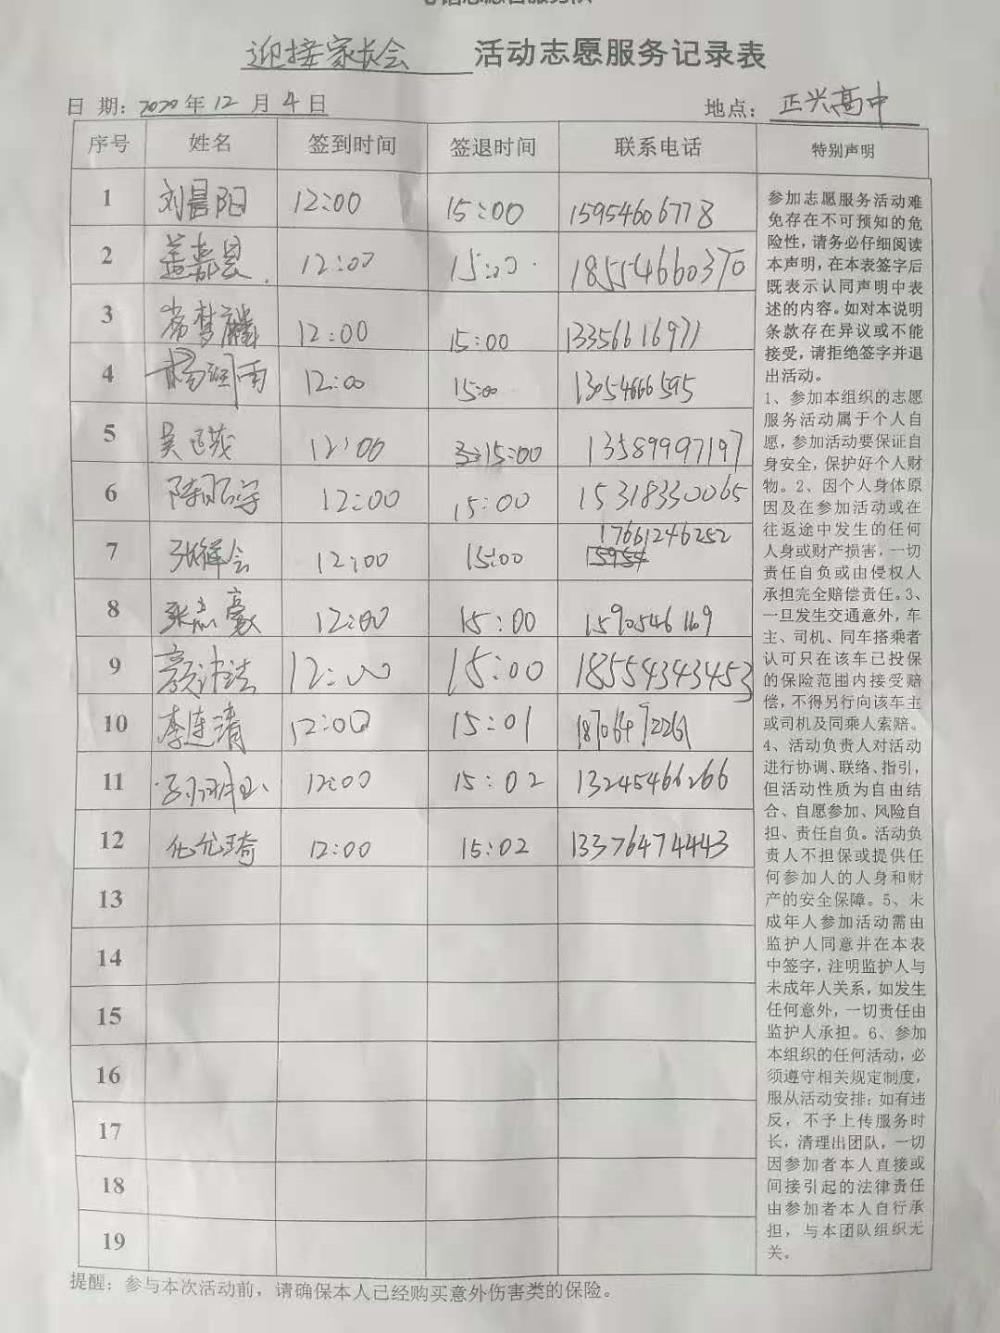 迎接家长会 活动志愿服务记录表
日 期：2020年12月4日 地点：正兴高中
序号 姓名 签到时间 签退时间 联系电话 特别声明
1 刘晨阳 12:00 15:00 15954606778
2 盖嘉昊 12:00 15:00 18554660370
3 常梦麟 12:00 15:00 13356616971
4 杨润雨 12:00 15:00 13054666595
5 吴 12:00 15:00 13589997197
6 陈 宇 12:00 15:00 15318330065
7 张祥会 12:00 15:00 17661246252
15954
8 张志豪 12:00 15:00 1590546169
9 颜 12:00 15:00 18554343453
10 李连清 12:00 15:01 18706492261
11 12:00 15:02 13245466266
12 12:00 15:02 13376474443
13
14
15
16
17
18
19
参加志愿服务活动难
免存在不可预知的危
险性，请务必仔细阅读
本声明，在本表签字后
既表示认同声明中表
述的内容。如对本说明
条款存在异议或不能
接受，请拒绝签字并退
出活动。
1、参加本组织的志愿
服务活动属于个人自
愿，参加活动要保证自
身安全，保护好个人财
物。2、因个人身体原
因及在参加活动或在
往返途中发生的任何
人身或财产损害，一切
责任自负或由侵权人
承担完全赔偿责任。3、
一旦发生交通意外，车
主、司机、同车搭乘者
认可只在该车已投保
的保险范围内接受赔
偿，不得另行向该车主
或司机及同乘人索赔。
4、活动负责人对活动
进行协调、联络、指引，
但活动性质为自由结
合、自愿参加、风险自
担、责任自负。活动负
责人不担保或提供任
何参加人的人身和财
产的安全保障。5、未
成年人参加活动需由
监护人同意并在本表
中签字，注明监护人与
未成年人关系，如发生
任何意外，一切责任由
监护人承担。6、参加
本组织的任何活动，必
须遵守相关规定制度，
服从活动安排；如有违
反，不予上传服务时
长，清理出团队，一切
因参加者本人直接或
间接引起的法律责任
由参加者本人自行承
担，与本团队组织无
关。
提醒：参与本次活动前，请确保本人已经购买意外伤害类的保险。